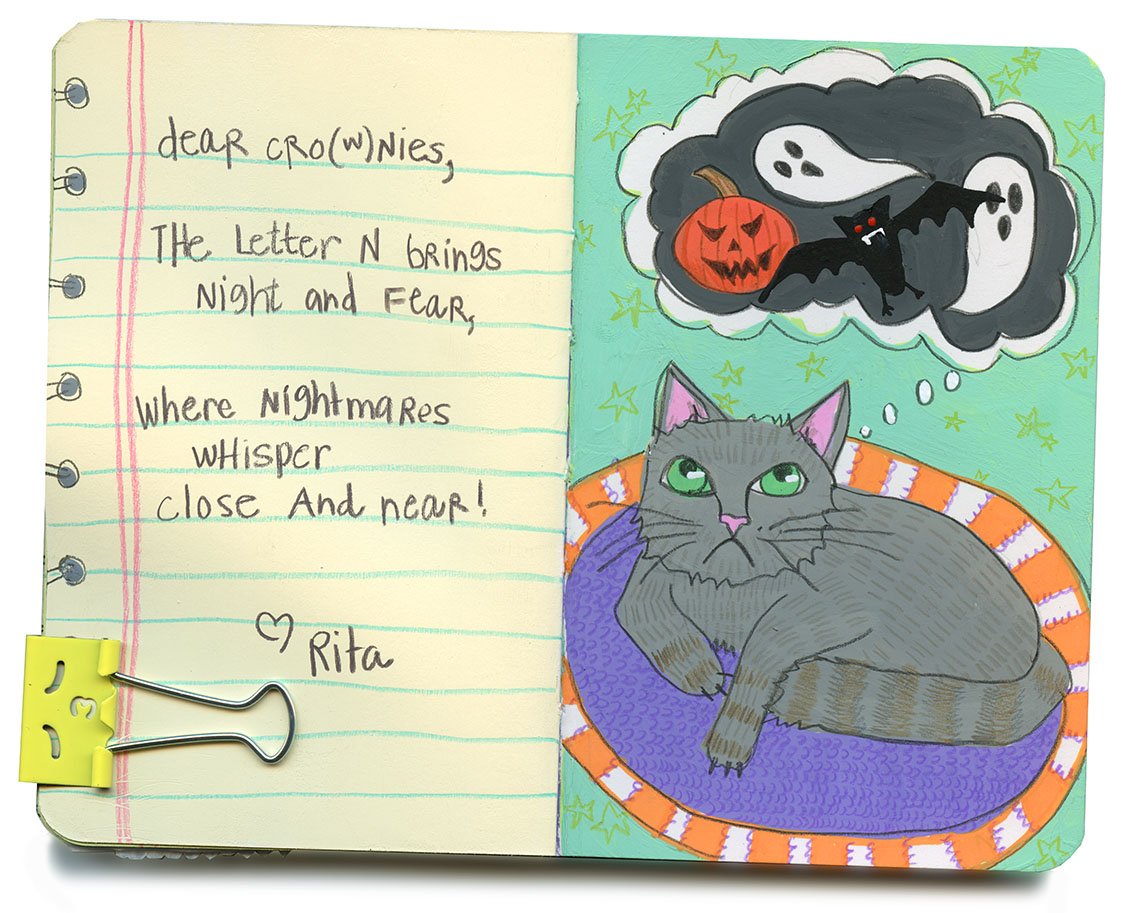 dear cro(w)nies,
THe Letter N brings
Night and Fear,
where Nightmares
wHisper
close And near!
♡ Rita